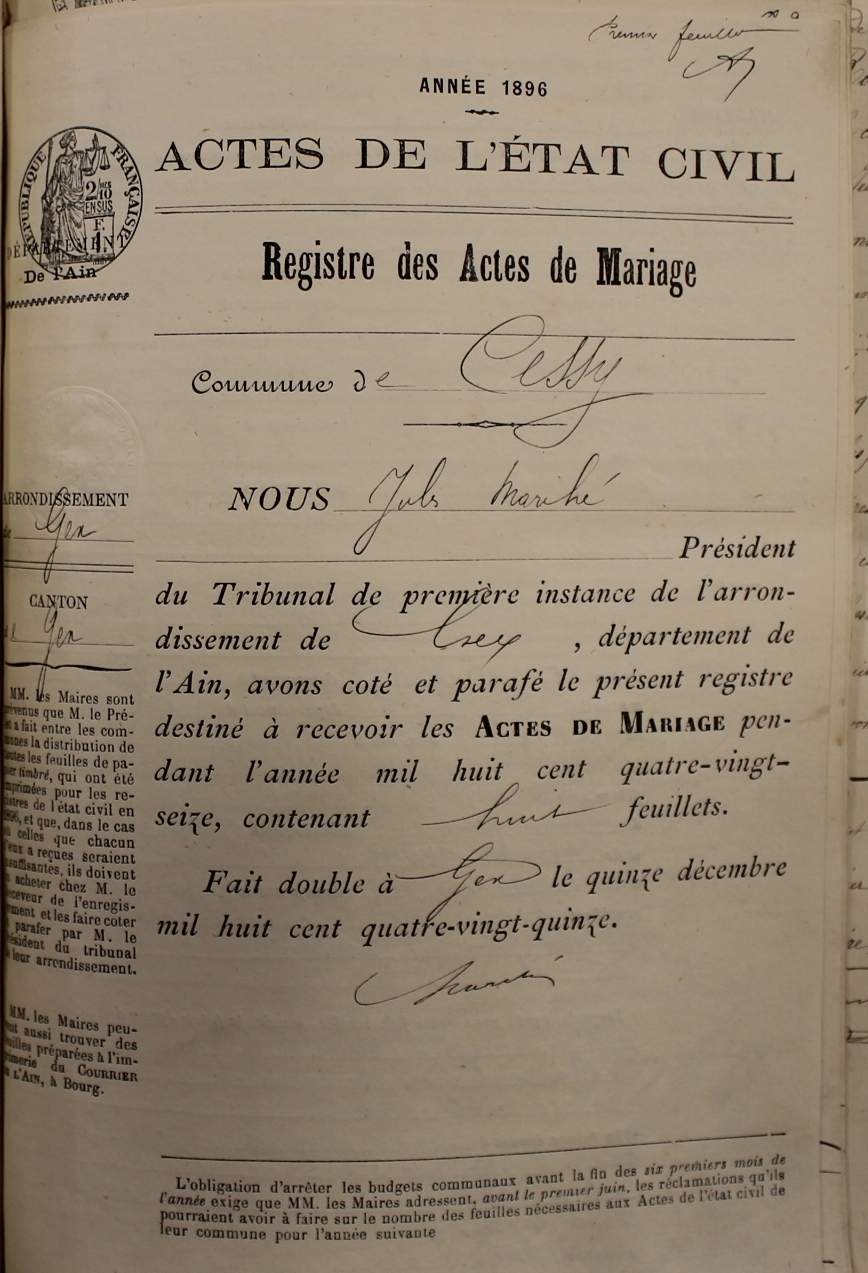 Premier feuillet
ANNÉE 1896
ACTES DE L'ÉTAT CIVIL
RÉPUBLIQUE FRANÇAISE
2/10
EN SUS
F.
1
DÉPARTEMENT
De l'Ain
Registre des Actes de Mariage
Commune de Cessy
ARRONDISSEMENT
de Gex
CANTON
de Gex
MM. les Maires sont
prévenus que M. le Pré-
fet a fait entre les com-
munes la distribution de
toutes les feuilles de pa-
pier timbré, qui ont été
imprimées pour les re-
gistres de l'état civil en
1896, et que, dans le cas
où celles que chacun
d'eux a reçues seraient
insuffisantes, ils doivent
en acheter chez M. le
receveur de l'enregis-
trement et les faire coter
et parafer par M. le
président du tribunal
de leur arrondissement.
MM. les Maires peu-
vent aussi trouver des
feuilles préparées à l'im-
primerie du COURRIER
DE L'AIN, à Bourg.
NOUS Jules Marché
Président
du Tribunal de première instance de l'arron-
dissement de Gex, département de
l'Ain, avons coté et parafé le présent registre
destiné à recevoir les ACTES DE MARIAGE pen-
dant l'année mil huit cent quatre-vingt-
seize, contenant huit feuillets.
Fait double à Gex le quinze décembre
mil huit cent quatre-vingt-quinze.
Marché
L'obligation d'arrêter les budgets communaux avant la fin des six premiers mois de
l'année exige que MM. les Maires adressent, avant le premier juin, les réclamations qu'ils
pourraient avoir à faire sur le nombre des feuilles nécessaires aux Actes de l'état civil de
leur commune pour l'année suivante